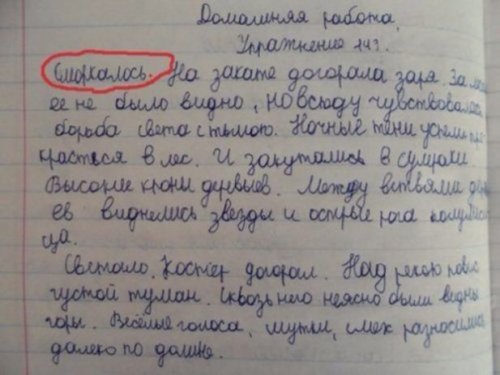 Домашняя работа.
Упражнение 143.
Сморкалось. На закате догорала заря. За
ее не было видно, но всюду чувствовалас
борьба света с тьмою. Ночные тени успели
красться в лес. И закутались в сумраки
Высокие кроны деревьев. Между ветвями
ев виднелись звезды и острые рога
ца.
Светало. Костёр догорал. Над рекою
густой туман. Сквозь него неясно были видны
горы. Весёлые голоса, шутки, смех разносились
далеко по долине.